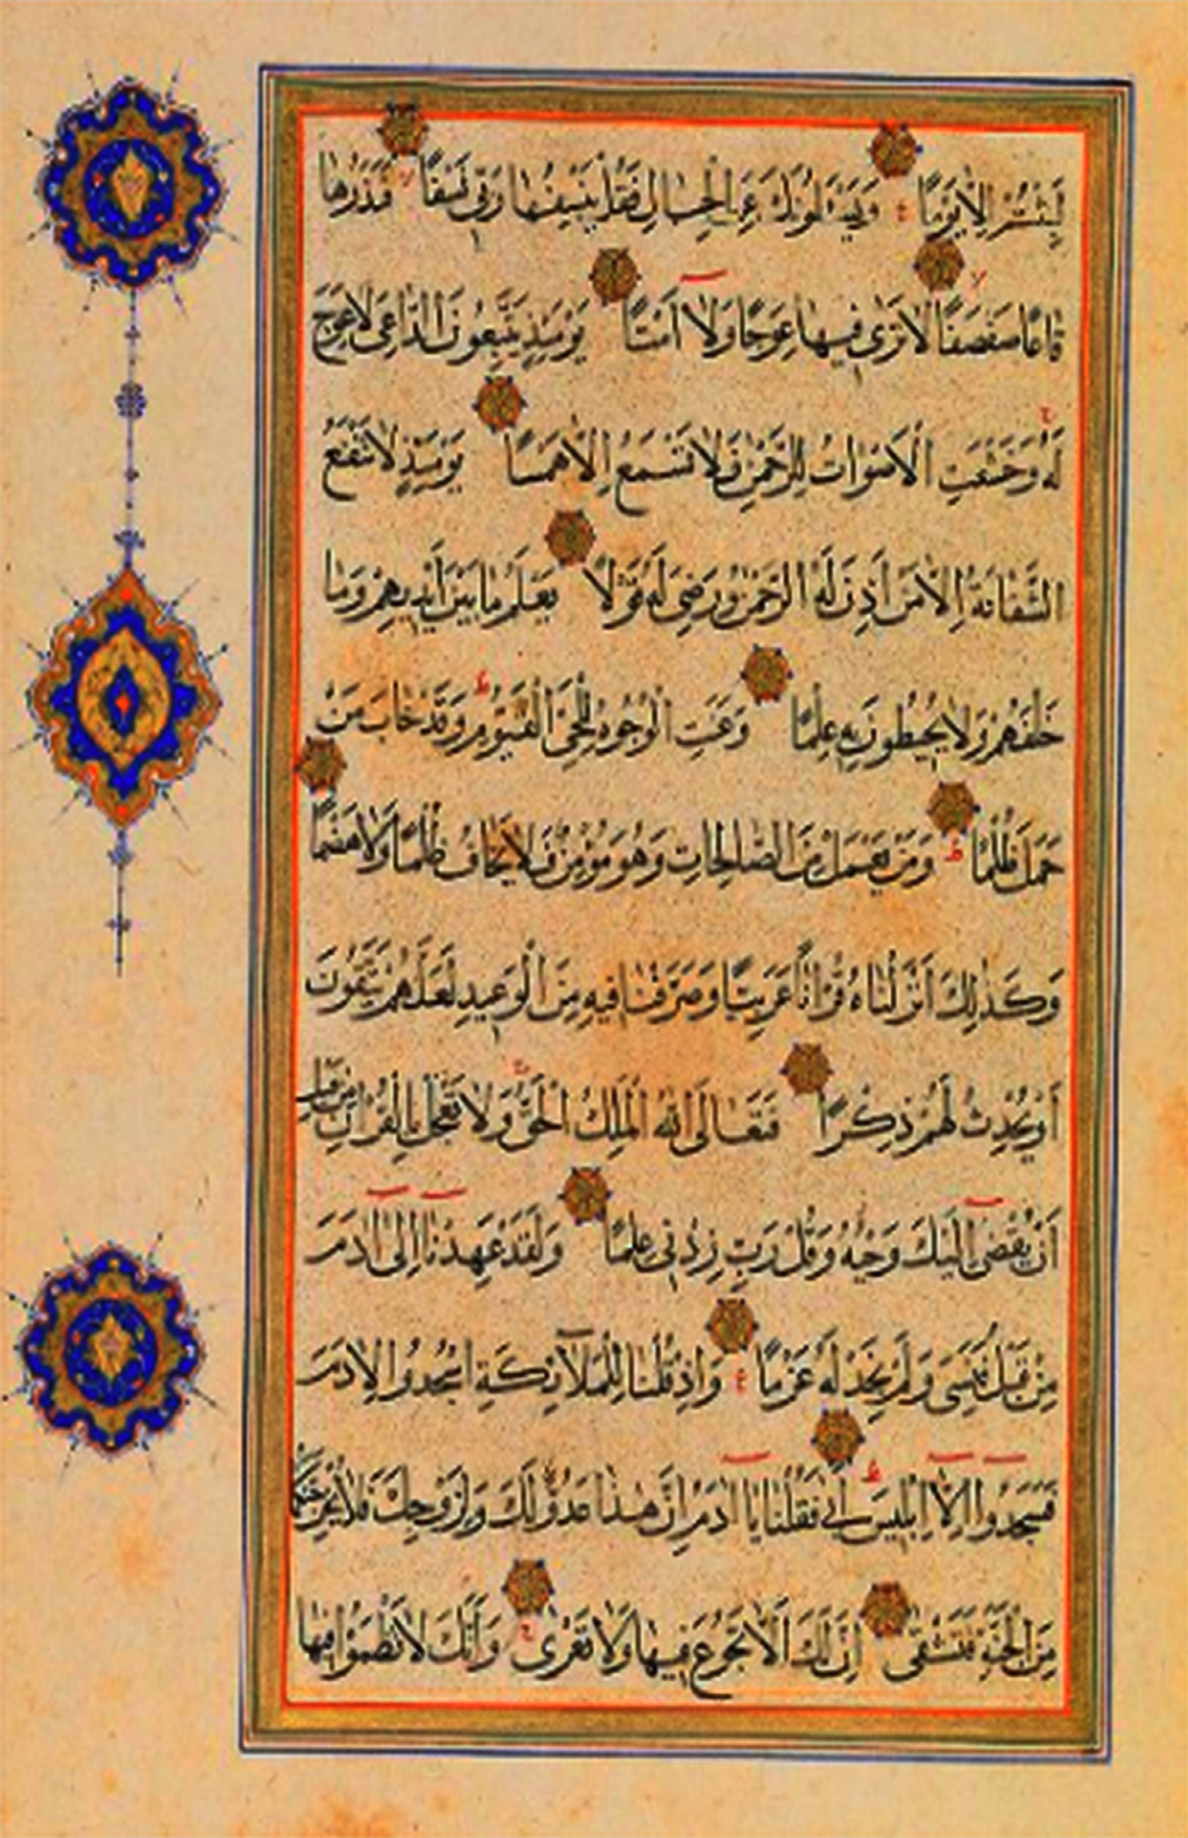 لَبِثْتُمْ اِلَّا يَوْمًا وَيَسْـَٔلُونَكَ عَنِ الْجِبَالِ فَقُلْ يَنْسِفُهَا رَبِّى نَسْفًا فَيَذَرُهَا
قَاعًا صَفْصَفًا لَا تَرٰى فِيهَا عِوَجًا وَلَا اَمْتًا يَوْمَئِذٍ يَتَّبِعُونَ الدَّاعِىَ لَا عِوَجَ
لَهُ وَخَشَعَتِ الْاَصْوَاتُ لِلرَّحْمٰنِ فَلَا تَسْمَعُ اِلَّا هَمْسًا يَوْمَئِذٍ لَا تَنْفَعُ
الشَّفَاعَةُ اِلَّا مَنْ اَذِنَ لَهُ الرَّحْمٰنُ وَرَضِىَ لَهُ قَوْلًا يَعْلَمُ مَا بَيْنَ اَيْدِيهِمْ وَمَا
خَلْفَهُمْ وَلَا يُحِيطُونَ بِهِ عِلْمًا وَعَنَتِ الْوُجُوهُ لِلْحَىِّ الْقَيُّومِ وَقَدْ خَابَ مَنْ
حَمَلَ ظُلْمًا وَمَنْ يَعْمَلْ مِنَ الصَّالِحَاتِ وَهُوَ مُؤْمِنٌ فَلَا يَخَافُ ظُلْمًا وَلَا هَضْمًا
وَكَذٰلِكَ اَنْزَلْنَاهُ قُرْاٰنًا عَرَبِيًّا وَصَرَّفْنَا فِيهِ مِنَ الْوَعِيدِ لَعَلَّهُمْ يَتَّقُونَ
اَوْ يُحْدِثُ لَهُمْ ذِكْرًا فَتَعَالَى اللّٰهُ الْمَلِكُ الْحَقُّ وَلَا تَعْجَلْ بِالْقُرْاٰنِ مِنْ قَبْلِ
اَنْ يُقْضٰى اِلَيْكَ وَحْيُهُ وَقُلْ رَبِّ زِدْنِى عِلْمًا وَلَقَدْ عَهِدْنَا اِلٰى اٰدَمَ
مِنْ قَبْلُ فَنَسِىَ وَلَمْ نَجِدْ لَهُ عَزْمًا وَاِذْ قُلْنَا لِلْمَلَآئِكَةِ اسْجُدُوا لِاٰدَمَ
فَسَجَدُوا اِلَّا اِبْلِيسَ اَبٰى فَقُلْنَا يَا اٰدَمُ اِنَّ هٰذَا عَدُوٌّ لَكَ وَلِزَوْجِكَ فَلَا يُخْرِجَنَّكُمَا
مِنَ الْجَنَّةِ فَتَشْقٰى اِنَّ لَكَ اَلَّا تَجُوعَ فِيهَا وَلَا تَعْرٰى وَاَنَّكَ لَا تَظْمَؤُا فِيهَا